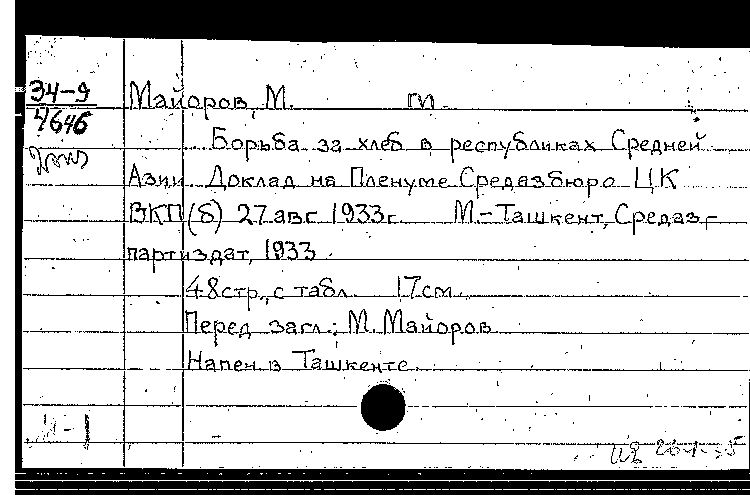 34-9
4646
Майоров, М.
Борьба за хлеб в республиках Средней
Азии. Доклад на Пленуме Средазбюро ЦК
ВКП(б) 27 авг 1933г. М.-Ташкент, Средаз-
партиздат, 1933.
48стр., с табл. 17см.
Перед загл.: М. Майоров
Напеч. в Ташкенте.